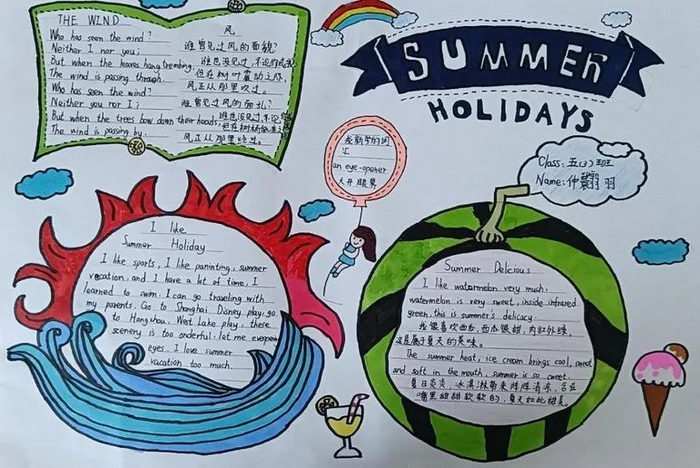 THE WIND
Who has seen the wind?
Neither I nor you;
But when the leaves hang trembling,
The wind is passing through.
Who has seen the wind?
Neither you nor I;
But when the trees bow down their heads,
The wind is passing by.
风
谁曾见过风的面貌?
谁也没见过,不论你或我
但在树叶震动之际,
风正从那里吹过。
谁曾见过风的
谁也没见过,不论
但在树梢
风正从那里经过。
SUMMER
HOLIDAYS
Class: 五(3)班
Name: 仲 羽
an eye-opener
大开眼界
I like
Summer Holiday
I like sports, I like paninting, summer
vacation, and I have a lot of time, I
learned to swim, I can go traveling with
my parents. Go to Shanghai Disney play, go
to Hangzhou, West Lake play, these
scenery is too onderful, let me
eyes, I love summer
vacation too much.
Summer Delicious
I like watermelon very much,
watermelon is very sweet, inside infrared
green, this is summer's delicacy.
我很喜欢西瓜,西瓜很甜,内红外绿,
这是属于夏天的美味。
The summer heat, ice cream brings cool, sweet
and soft in the mouth, summer is so sweet.
夏日炎炎,冰淇淋带来阵阵清凉,含在
嘴里甜甜软软的,夏天如此甜美。